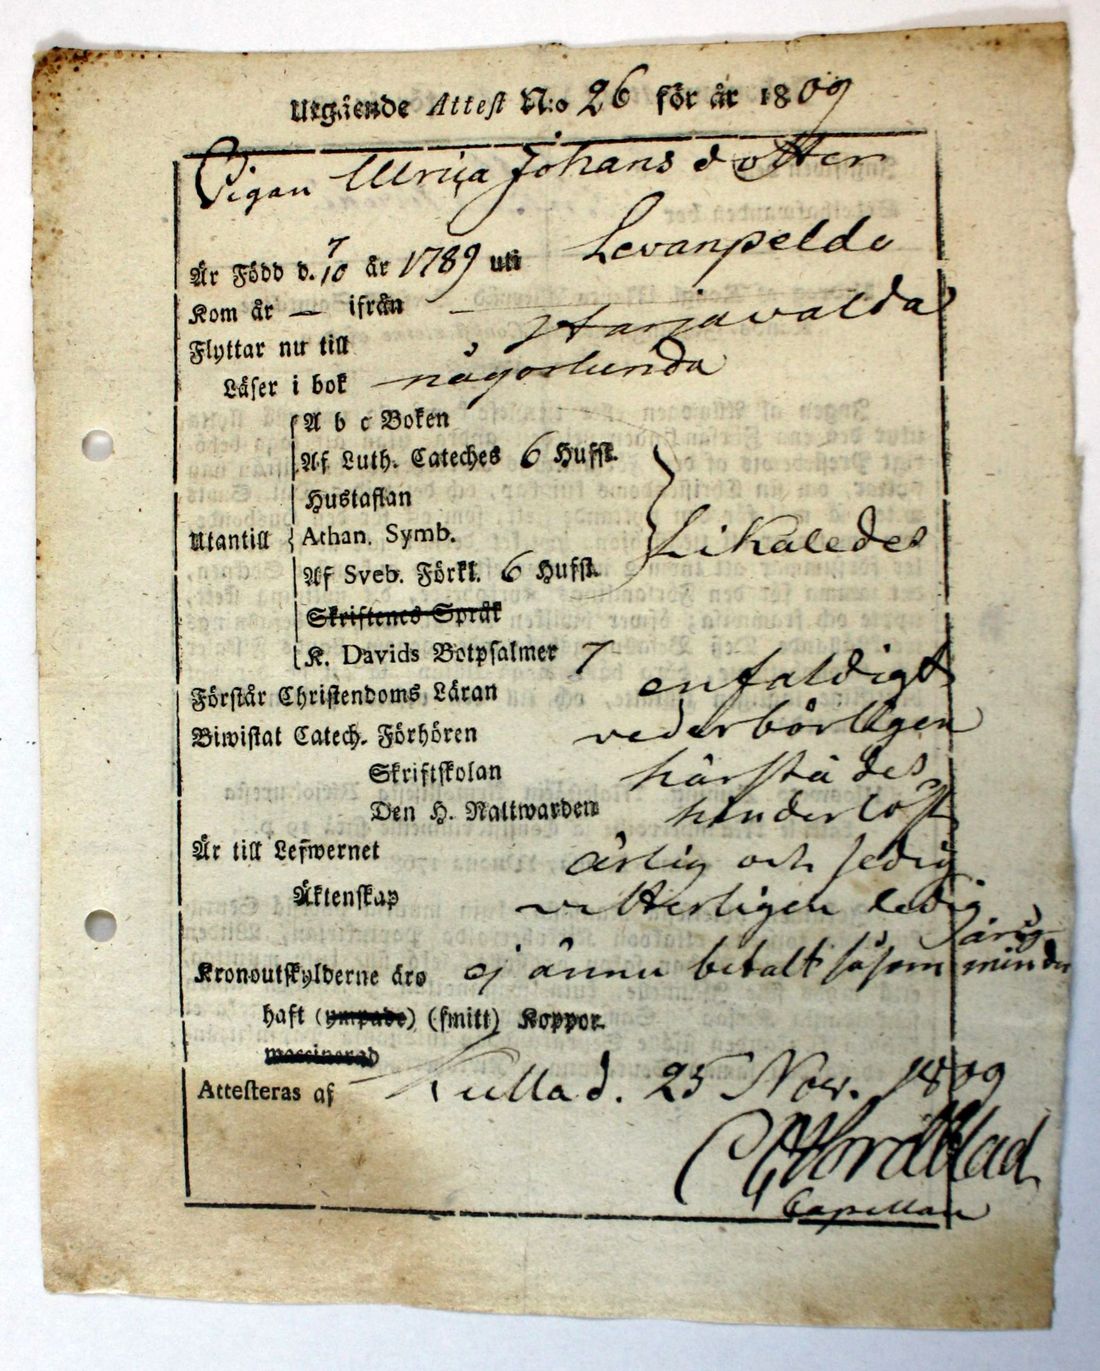 Utgående Attest N:o 26 för år 1809
Pigan Ulrica Johans dotter
Är Född d. 7/10 år 1789 uti Levanpeldo
Kom år — ifrån —
Flyttar nu till Harjavalda
Läser i bok någorlunda
A b c Boken
Af Luth. Cateches 6 Hufst.
Hustaflan
Utantill Athan. Symb. Likaledes
Af Sveb. Förkl. 6 Hufst.
Skriftenes Språk
K. Davids Botpsalmer 7
Förstår Christendoms Läran enfaldigt
Biwistat Catech. Förhören vederbörligen
Skriftskolan härstädes
Den H. Nattwarden hinderlöst
Är till Lefwernet ärlig och sedig
Äktenskap vitterligen ledig
Kronoutskylderne äro ej ännu betalt såsom minder
årig
haft (ympade) (smitt) Koppor.
waccinerad
Attesteras af Kulla d. 25 Nov. 1809
Nordblad
Capellan